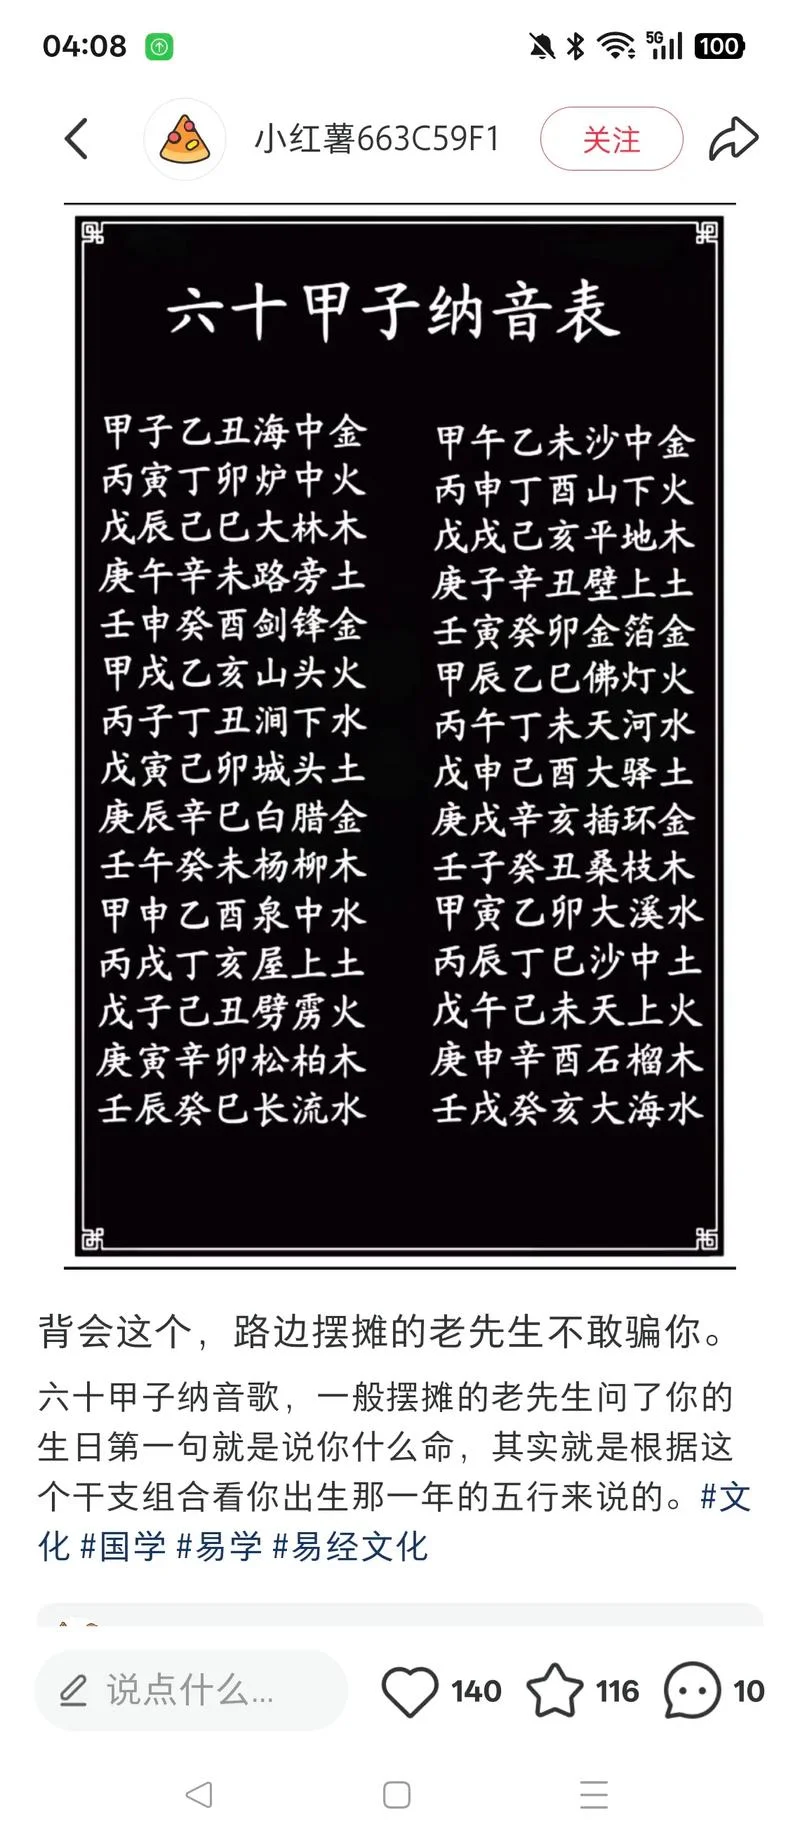 04:08
5G
100
小红薯663C59F1
关注
六十甲子纳音表
甲子乙丑海中金
丙寅丁卯炉中火
戊辰己巳大林木
庚午辛未路旁土
壬申癸酉剑锋金
甲戌乙亥山头火
丙子丁丑涧下水
戊寅己卯城头土
庚辰辛巳白腊金
壬午癸未杨柳木
甲申乙酉泉中水
丙戌丁亥屋上土
戊子己丑劈雳火
庚寅辛卯松柏木
壬辰癸巳长流水
甲午乙未沙中金
丙申丁酉山下火
戊戌己亥平地木
庚子辛丑壁上土
壬寅癸卯金箔金
甲辰乙巳佛灯火
丙午丁未天河水
戊申己酉大驿土
庚戌辛亥插环金
壬子癸丑桑枝木
甲寅乙卯大溪水
丙辰丁巳沙中土
戊午己未天上火
庚申辛酉石榴木
壬戌癸亥大海水
背会这个，路边摆摊的老先生不敢骗你。
六十甲子纳音歌，一般摆摊的老先生问了你的
生日第一句就是说你什么命，其实就是根据这
个干支组合看你出生那一年的五行来说的。#文
化 #国学 #易学 #易经文化
说点什么...
140
116
10